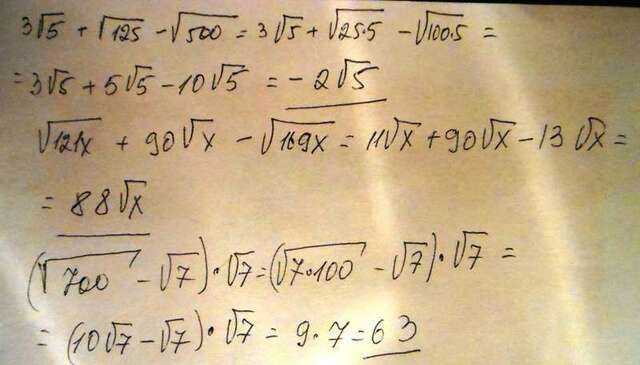 3√5 + √125 - √500 = 3√5 + √25·5 - √100·5 =
= 3√5 + 5√5 - 10√5 = - 2√5
√121x + 90√x - √169x = 11√x + 90√x - 13√x =
= 88√x
(√700 - √7)·√7 = (√7·100 - √7)·√7 =
= (10√7 - √7)·√7 = 9·7 = 63